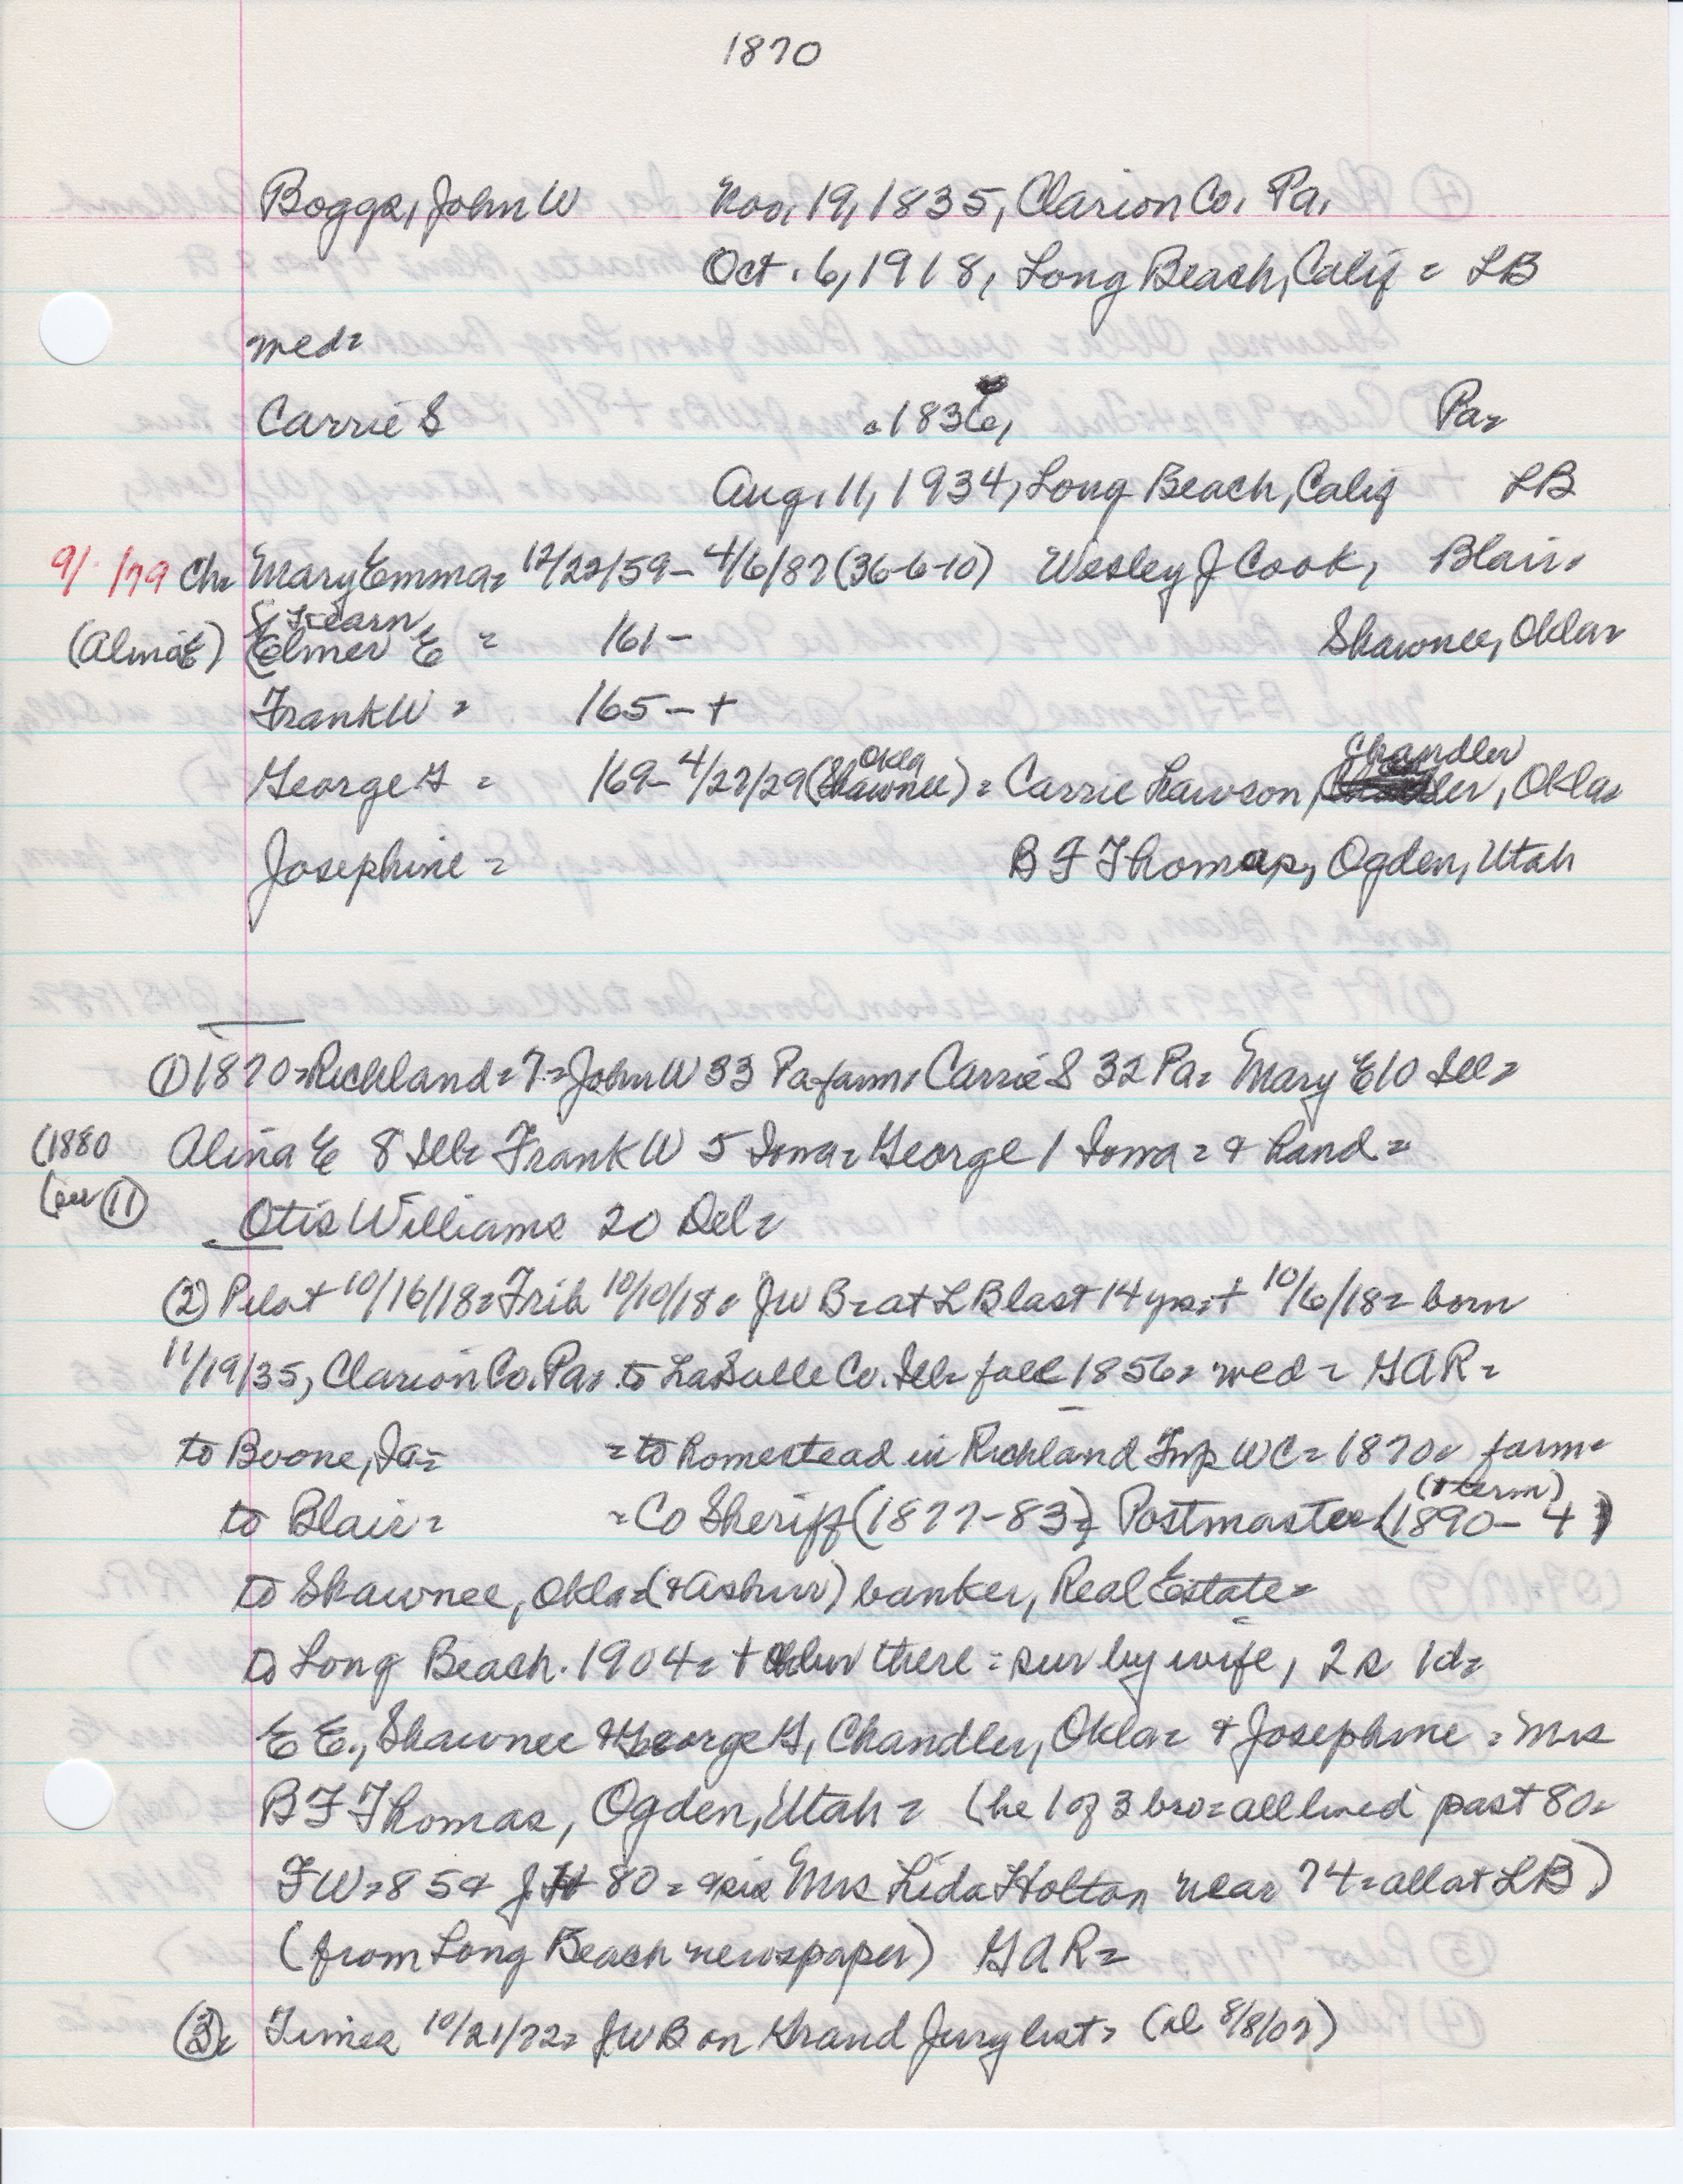 1870
Boggs, John W Nov. 19, 1835, Clarion Co. Pa.
Oct. 6, 1918, Long Beach, Calif = LB
med=
Carrie S 1836, Pa=
Aug. 11, 1934, Long Beach, Calif LB
9/ /79 Ch= Mary Emma= 12/22/59 - 4/6/87 (36-6-10) Wesley J Cook, Blair.
(Alina E) (Elmer E = '61 - Shawnee, Okla=
Frank W = '65 - +
George G = '69 - 4/27/29 (Shawnee Okla) = Carrie Lawson, Chandler, Okla=
Josephine = B F Thomas, Ogden, Utah
① 1870=Richland=7=John W 33 Pa farm= Carrie S 32 Pa= Mary E 10 Ill=
(1880 Alina E 8 Ill= Frank W 5 Iowa= George 1 Iowa= & hand=
(see ⑪ Otis Williams 20 Del=
② Pilot 10/16/18= Trib 10/10/18= JW B= at LB last 14 yrs= + 10/6/18= born
11/19/35, Clarion Co. Pa= to LaSalle Co. Ill= fall 1856= med = GAR=
to Boone, Ia= = to homestead in Richland Twp WC= 1870= farm=
to Blair= =Co Sheriff (1877-83)= Postmaster (1890-4) (1 term)
to Shawnee, Okla= (& Ashur) banker, Real Estate=
to Long Beach. 1904= + & bur there = sur by wife, 2 s 1d=
E E., Shawnee & George G, Chandler, Okla= & Josephine = Mrs
B F Thomas, Ogden, Utah = (he 1 of 3 bro= all lived past 80=
FW=85 & J H 80 = & sis Mrs Lida Holton near 74= all at LB)
(from Long Beach newspaper) GAR=
③= Times 10/21/72= JWB on Grand Jury list= (al 8/8/07)